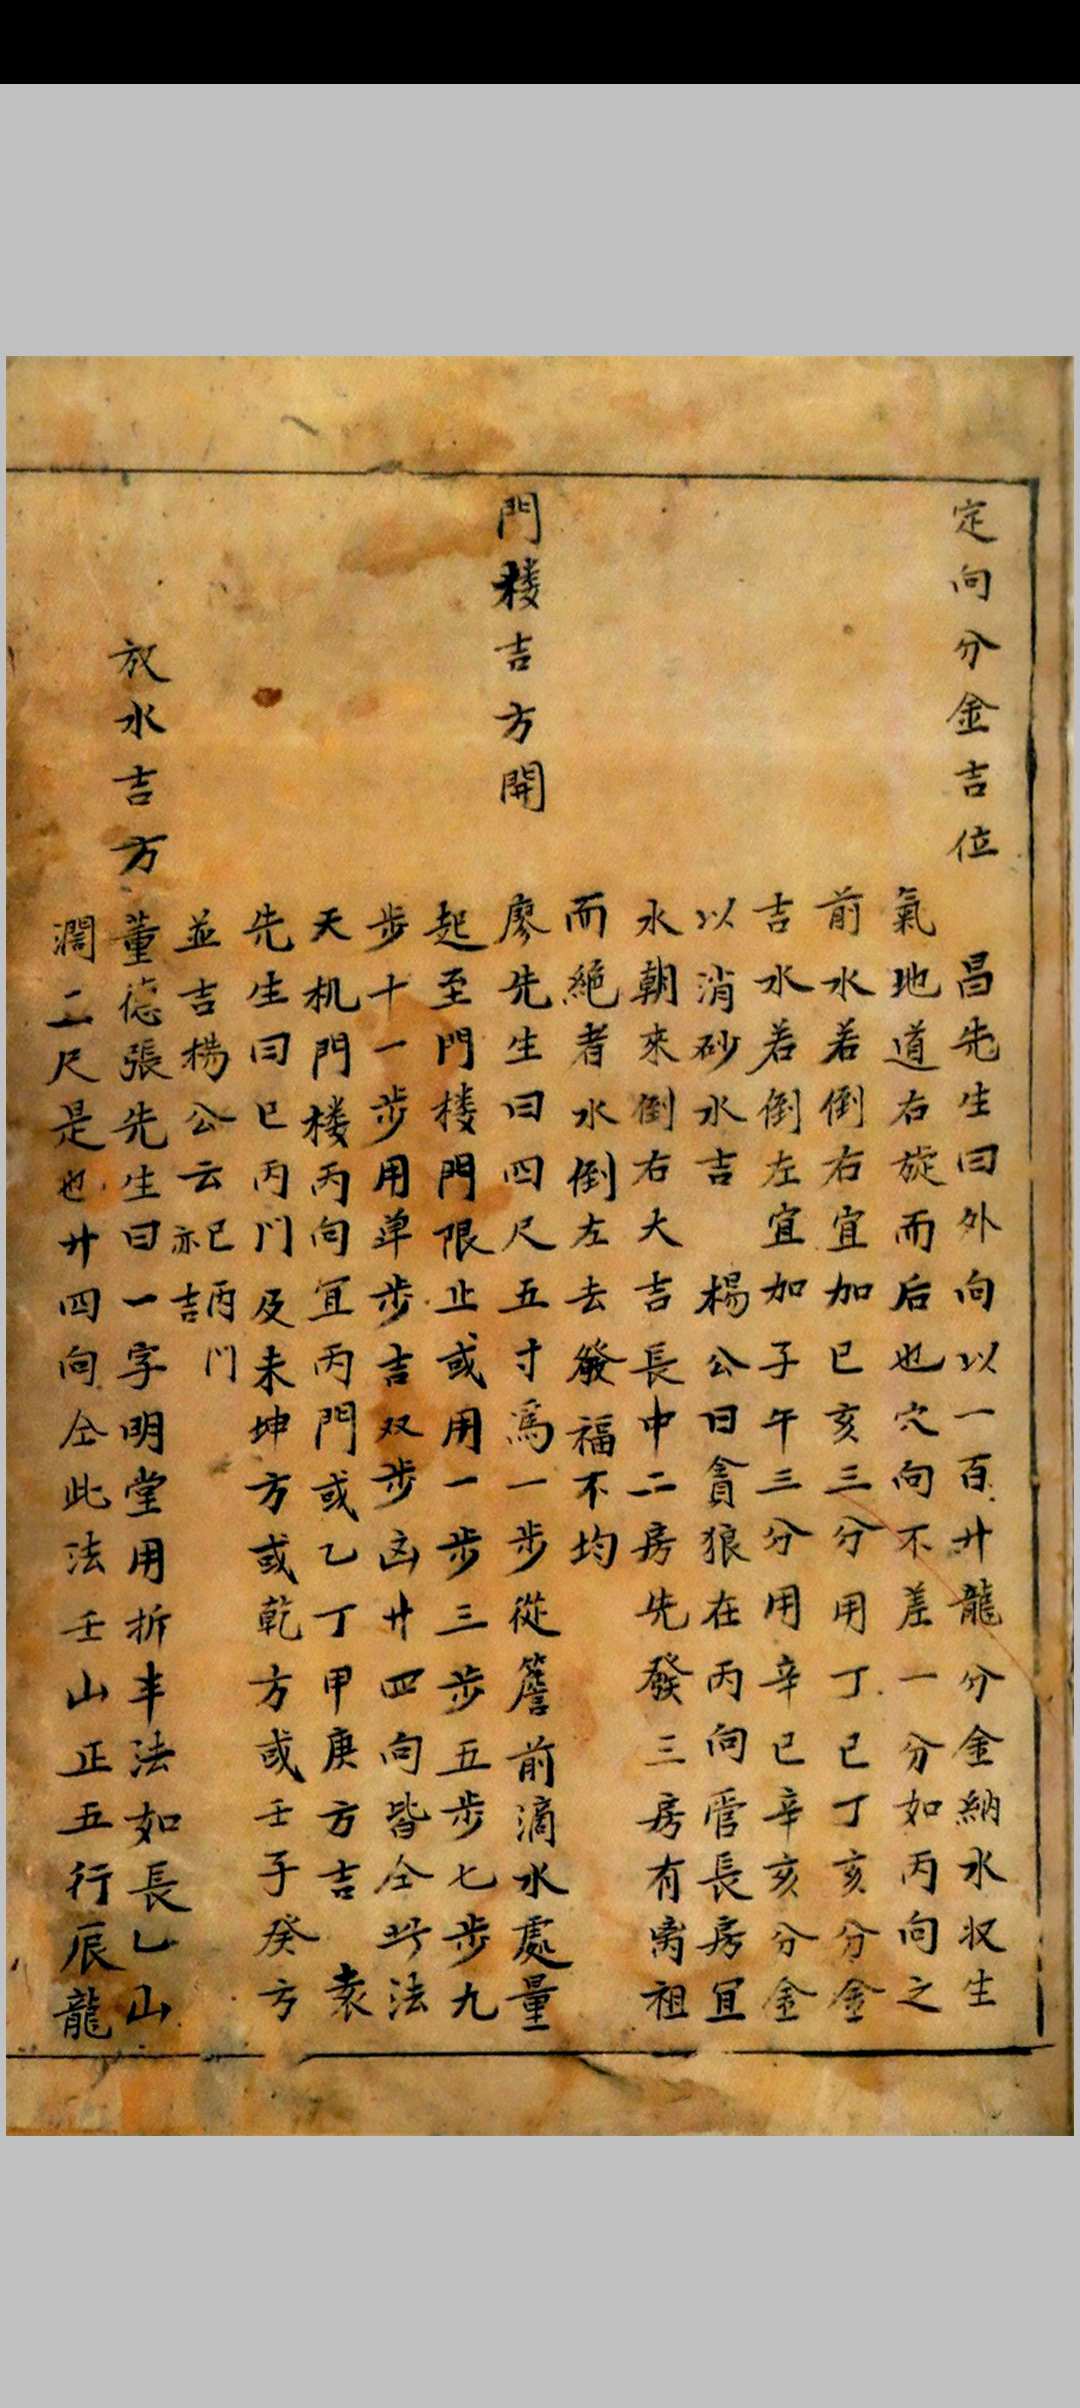 定向分金吉位
昌先生曰外向以一百廾龍分金納水収生
氣地道右旋而后也穴向不差一分如丙向之
前水若倒右宜加巳亥三分用丁巳丁亥分金
吉水若倒左宜加子午三分用辛巳辛亥分金
以消砂水吉 楊公曰貪狼在丙向管長房冝
水朝來倒右大吉長中二房先發三房有离祖
而絕者水倒左去發福不均
門楼吉方開
廖先生曰四尺五寸爲一步從簷前滴水處量
起至門楼門限止或用一步三步五步七步九
步十一步用单步吉双步凶廾四向皆仝此法
天机門楼丙向冝丙門或乙丁甲庚方吉 袁
先生曰巳丙门及未坤方或乾方或壬子癸方
並吉楊公云巳丙门亦吉
放水吉方
董德張先生曰一字明堂用折半法如長乙山
濶二尺是也廾四向仝此法壬山正五行辰龍